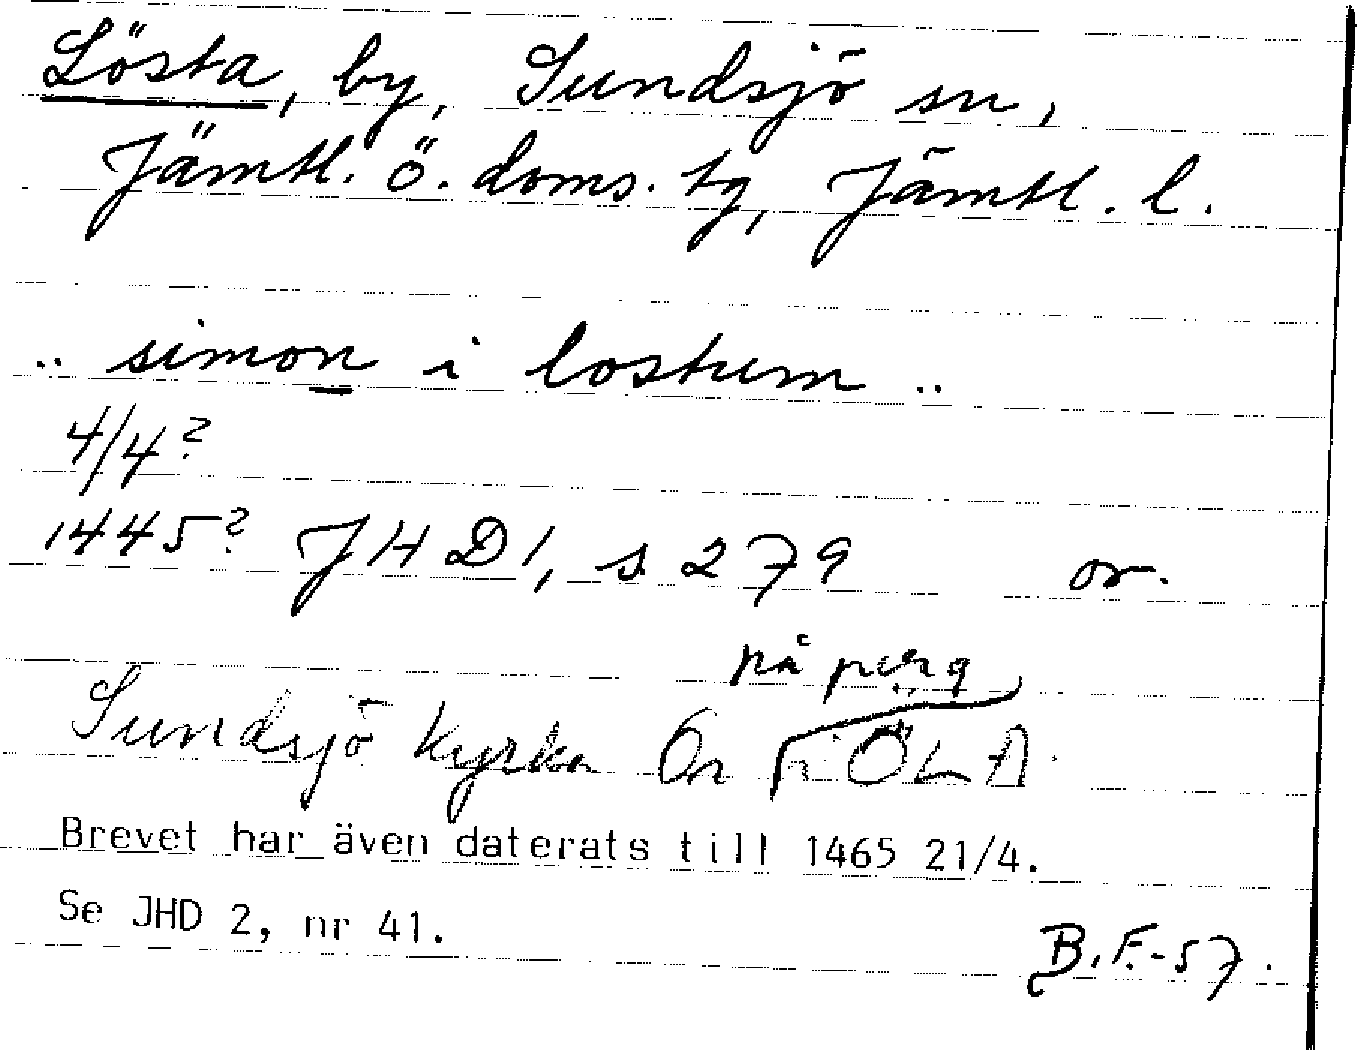 Lösta, by, Sundsjö sn,
Jämtl. Ö. doms. tg, Jämtl. l.
.. simon i lostum ..
4/4?
1445? JHD 1, s. 279 or.
på perg
Sundsjö kyrka Or i ÖLA
Brevet har även daterats till 1465 21/4.
Se JHD 2, nr 41.
B.F.-57.